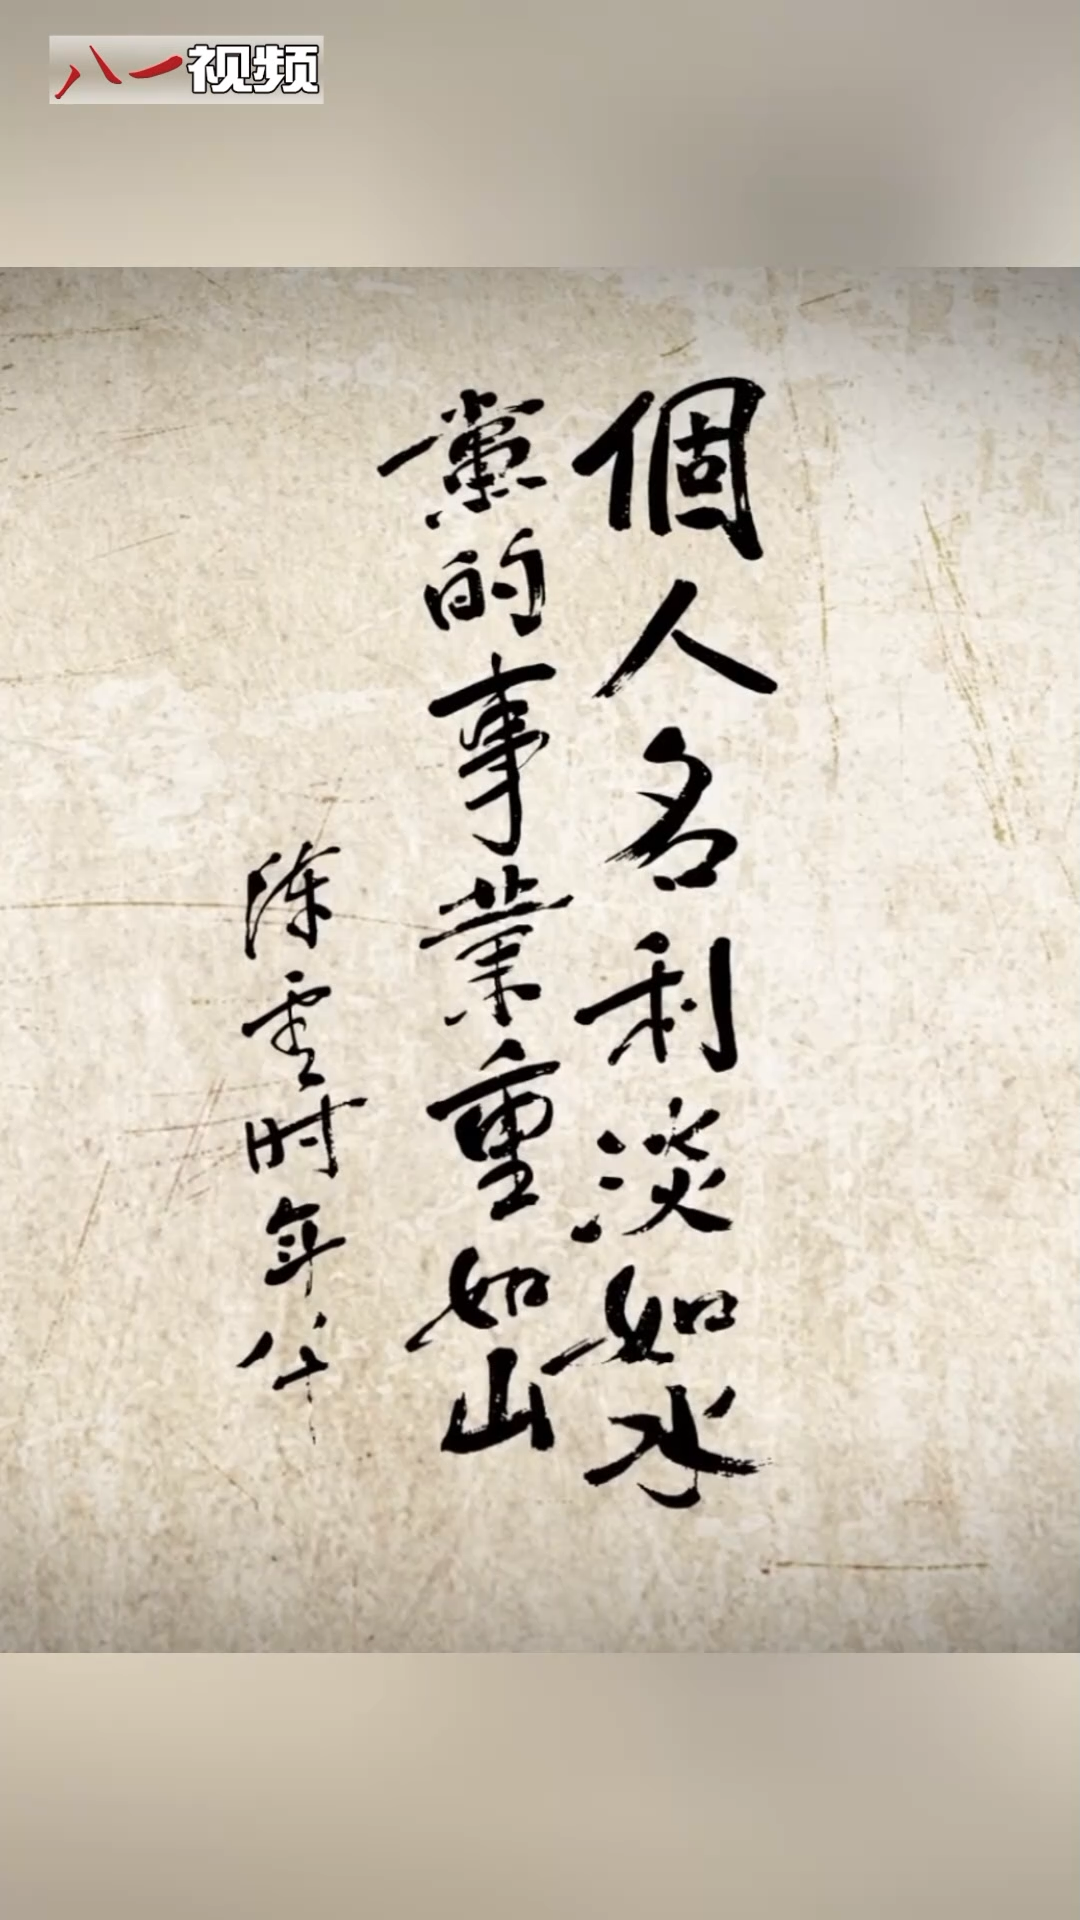 八一视频
個人名利淡如水
黨的事業重如山
陈雲时年八十